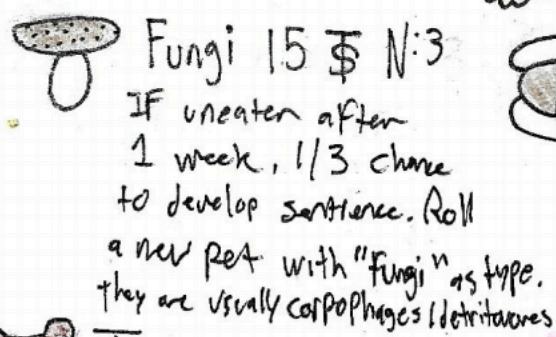 Fungi 15 $ N:3
IF uneaten after
1 week, 1/3 chance
to develop sentience. Roll
a new pet with "fungi" as type.
they are usually corpophages/detritovores